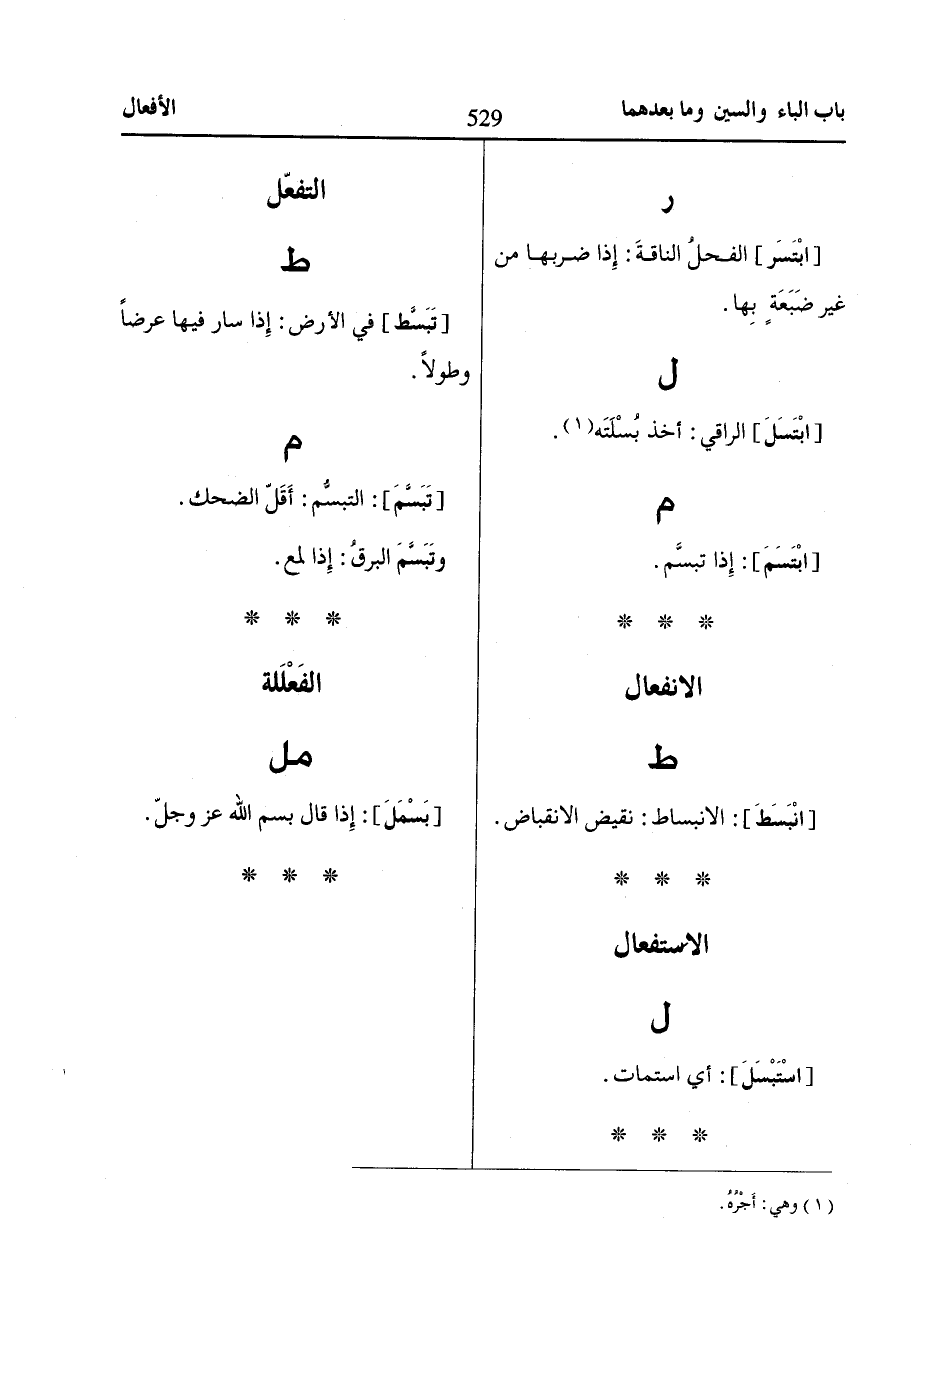 باب الباء والسين وما بعدهما
529
الأفعال
ر
[ابْتَسَر] الفحلُ الناقةَ: إِذا ضربها من
غير ضَبَعَةٍ بِها.
ل
[ابْتَسَلَ] الراقي: أخذ بُسْلَتَه(١).
م
[ابْتَسَمَ]: إِذا تبسَّم.
* * *
الانفعال
ط
[انْبَسَطَ]: الانبساط: نقيض الانقباض.
* * *
الاستفعال
ل
[اسْتَبْسَلَ]: أي استمات.
* * *
التفعّل
ط
[تَبَسَّط] في الأرض: إِذا سار فيها عرضاً
وطولاً.
م
[تَبَسَّمَ]: التبسُّم: أَقَلّ الضحك.
وتَبَسَّمَ البرقُ: إِذا لمع.
* * *
الفَعْلَلة
مل
[بَسْمَلَ]: إِذا قال بسم الله عز وجلّ.
* * *
(١) وهي: أَجْرُهُ.